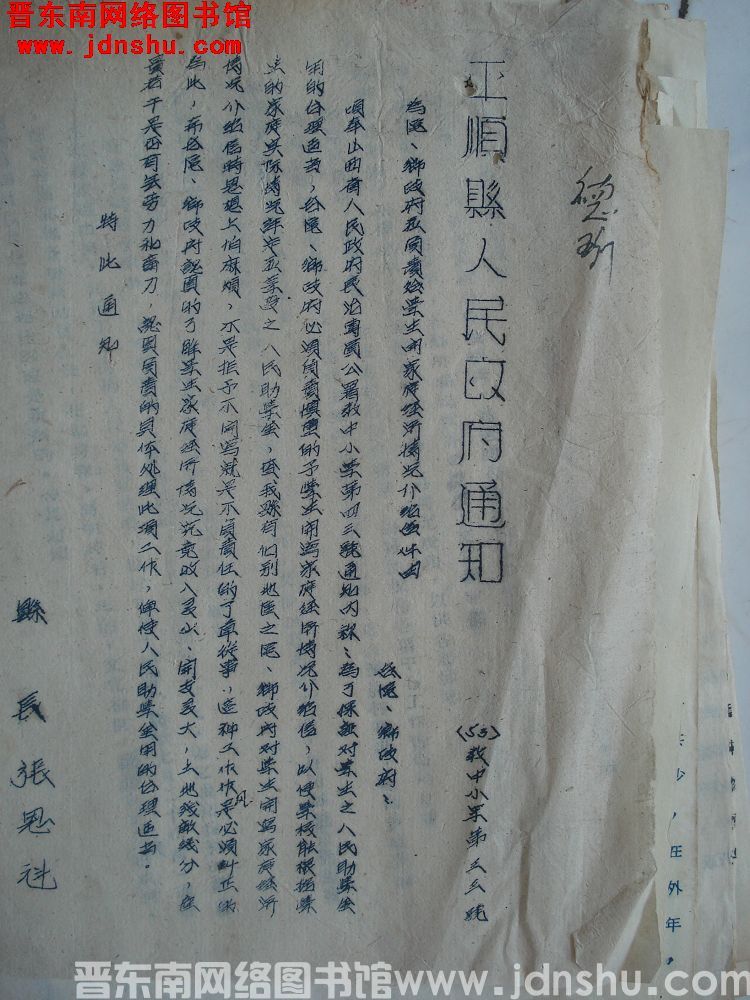 晋东南网络图书馆
www.jdnshu.com
平順縣人民政府通知
(53)教中小字第三三號
為區、鄉政府认真負責給學生開家庭經濟情況介紹信件由
各區、鄉政府：
頃奉山西省人民政府長治專員公署教中小學第四三號通知內稱：為了保証对學生之人民助學金
用的合理適当，各區、鄉政府必須負責慎重的予學生開寫家庭經濟情況介紹信，以使學校能根据學
生的家庭實际情況評定至某段之人民助學金，查我縣有個別地區之區、鄉政府对學生開寫家庭經济
情況介紹信時思想上怕麻煩，不是推予不開寫就是不負責任的了草從事，這种工作作風是必須糾正的
為此，希各區、鄉政府認真的了解學生家庭經济情況究竟收入多少、開支多大，土地幾畝幾分，產
量若干是否有無劳力和畜力，認真負責的具体处理此項工作，俾使人民助學金用的合理適当。
特此通知
縣長張思科
德珍
少，在外年，
晋东南网络图书馆www.jdnshu.com